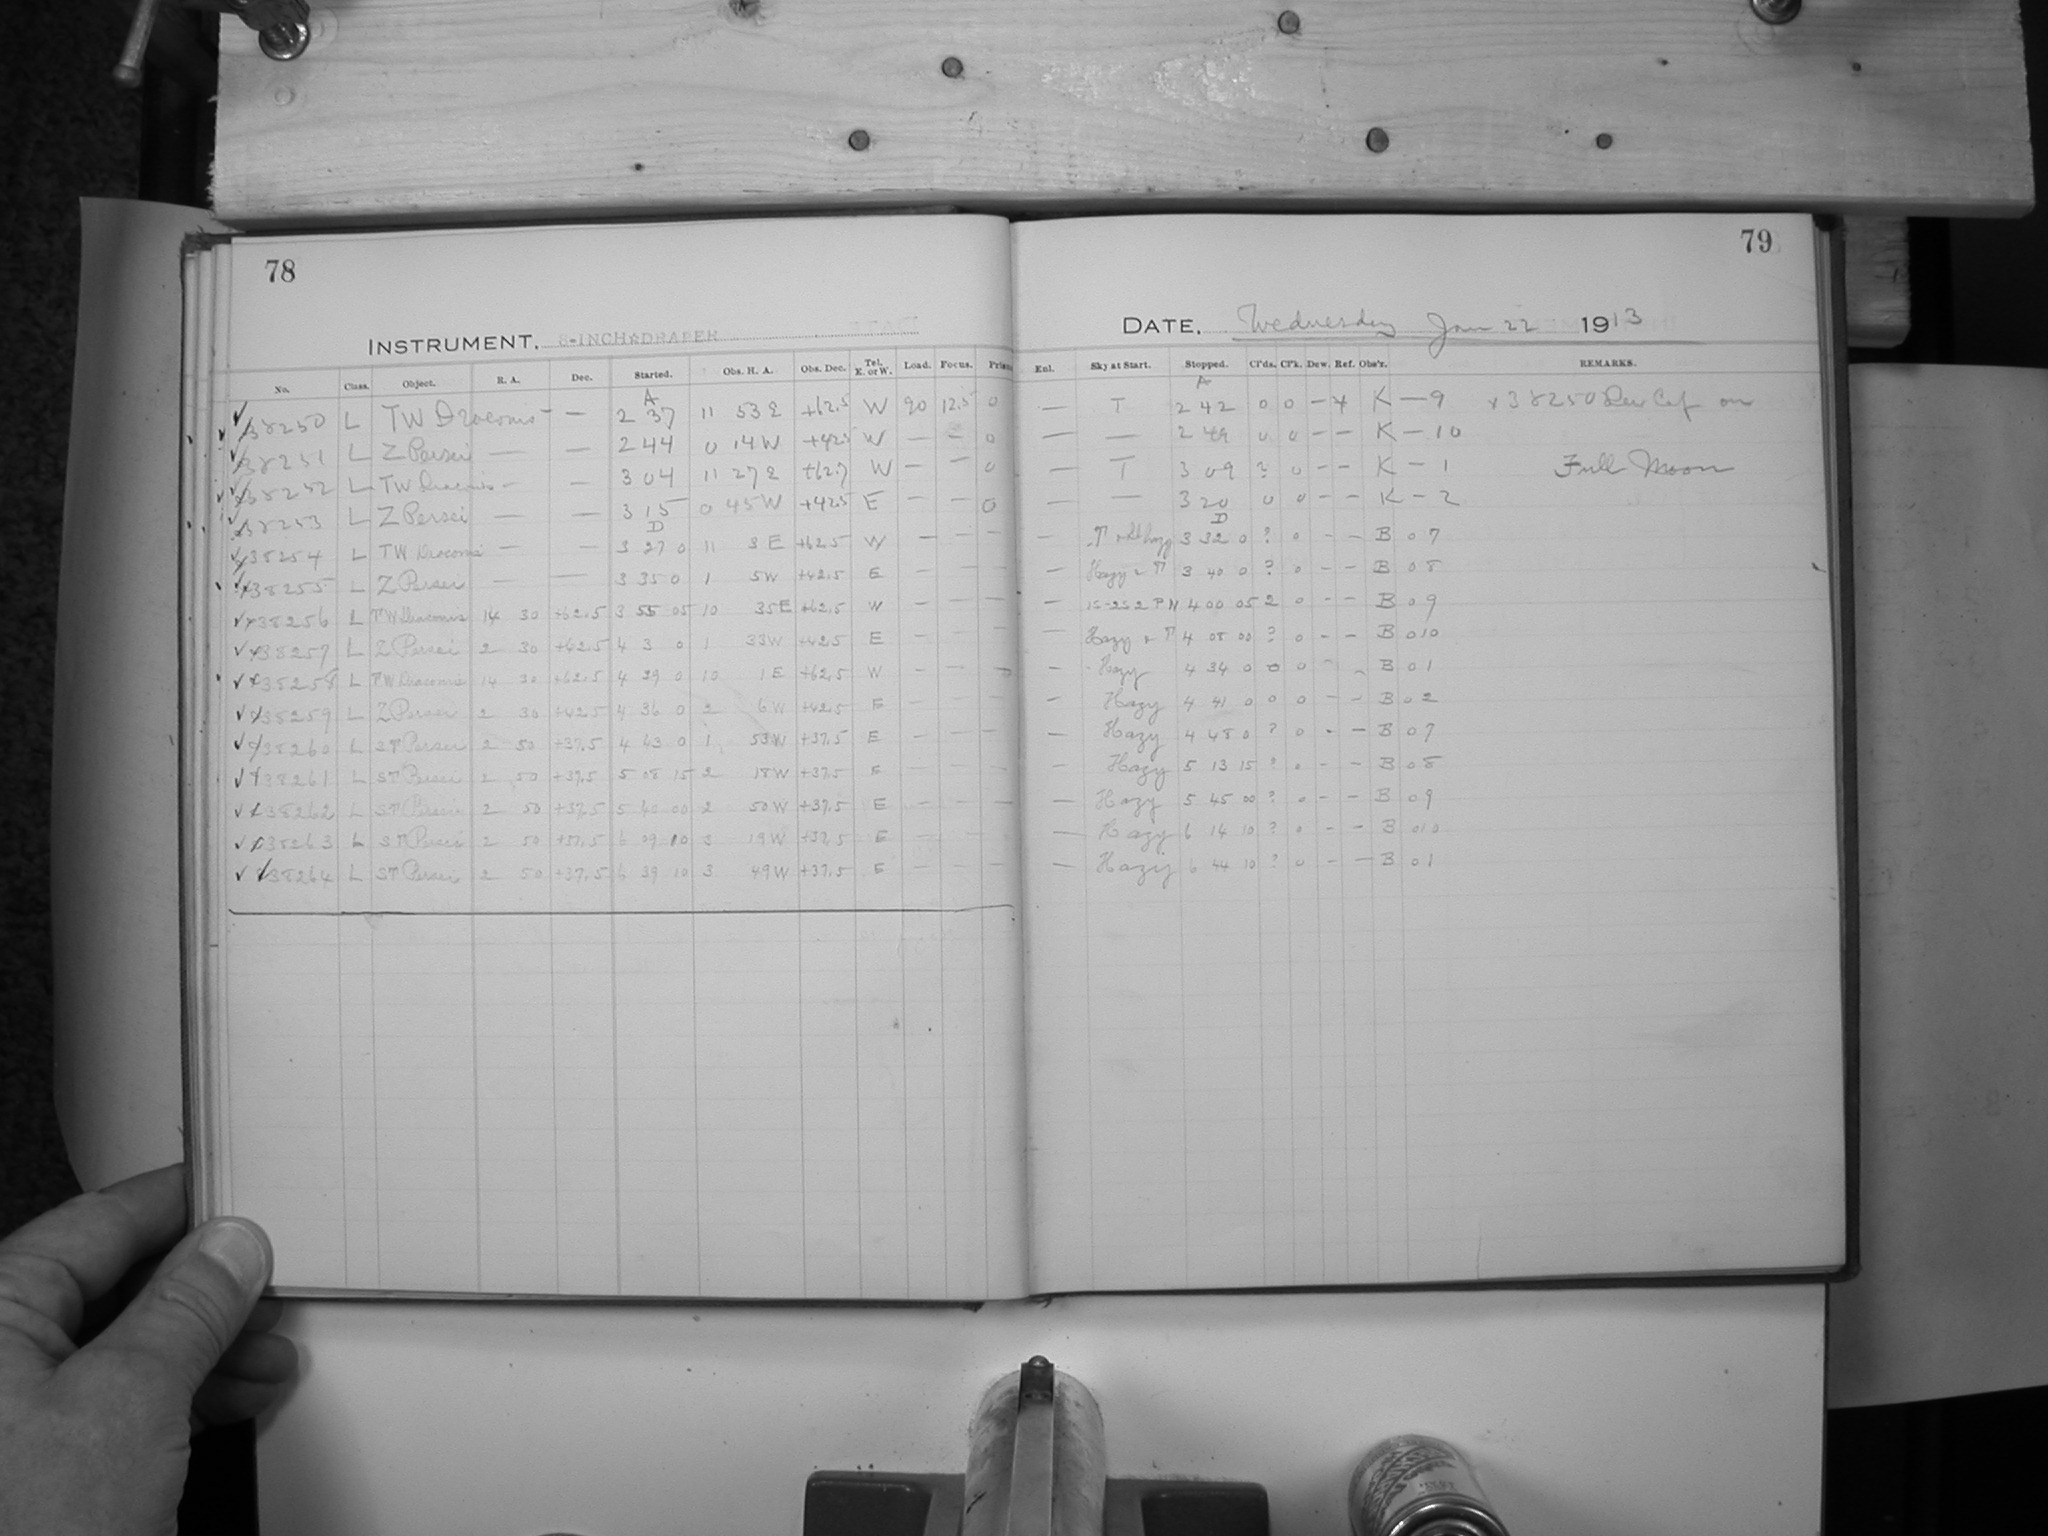 78
INSTRUMENT. 8-INCH DRAPER
No. Class. Object. R. A. Dec. Started. Obs. H. A. Obs. Dec. Tel. E. or W. Load. Focus. Prism
A
38250 L TW Draconis — — 2 37 11 53 E +62.5 W 90 12.5 0
38251 L Z Persei — — 2 44 0 14 W +42.5 W — — 0
38252 L TW Draconis — — 3 04 11 27 E +62.7 W — — 0
38253 L Z Persei — — 3 15 0 45 W +42.5 E — — 0
D
38254 L TW Draconis — — 3 27 0 11 3 E +62.5 W — — —
38255 L Z Persei — — 3 35 0 1 5 W +42.5 E — — —
38256 L TW Draconis 14 30 +62.5 3 55 05 10 35 E +62.5 W — — —
38257 L Z Persei 2 30 +42.5 4 3 0 1 33 W +42.5 E — — —
38258 L TW Draconis 14 30 +62.5 4 29 0 10 1 E +62.5 W — — —
38259 L Z Persei 2 30 +42.5 4 36 0 2 6 W +42.5 E — — —
38260 L ST Persei 2 50 +37.5 4 43 0 1 53 W +37.5 E — — —
38261 L ST Persei 2 50 +37.5 5 08 15 2 18 W +37.5 E — — —
38262 L ST Persei 2 50 +37.5 5 40 00 2 50 W +37.5 E — — —
38263 L ST Persei 2 50 +37.5 6 09 10 3 19 W +37.5 E — — —
38264 L ST Persei 2 50 +37.5 6 39 10 3 49 W +37.5 E — — —
79
DATE, Wednesday Jan 22 1913
Enl. Sky at Start. Stopped. Cl'ds. Cl'k. Dew. Ref. Obs'r. REMARKS.
A
— T 2 42 0 0 — x K — 9 x 38250 Dew Cap on
— — 2 49 0 0 — — K — 10
— T 3 09 ? 0 — — K — 1 Full Moon
— — 3 20 0 0 — — K — 2
D
— hazy 3 32 0 ? 0 — — B 07
— Hazy & T 3 40 0 ? 0 — — B 08
— 4 00 05 2 0 — — B 09
— Hazy & T 4 08 00 ? 0 — — B 010
— Hazy 4 34 0 0 0 — — B 01
— Hazy 4 41 0 0 0 — — B 02
— Hazy 4 48 0 ? 0 — — B 07
Hazy 5 13 15 ? 0 — — B 08
— Hazy 5 45 00 ? 0 — — B 09
— Hazy 6 14 10 ? 0 — — B 010
— Hazy 6 44 10 ? 0 — — B 01